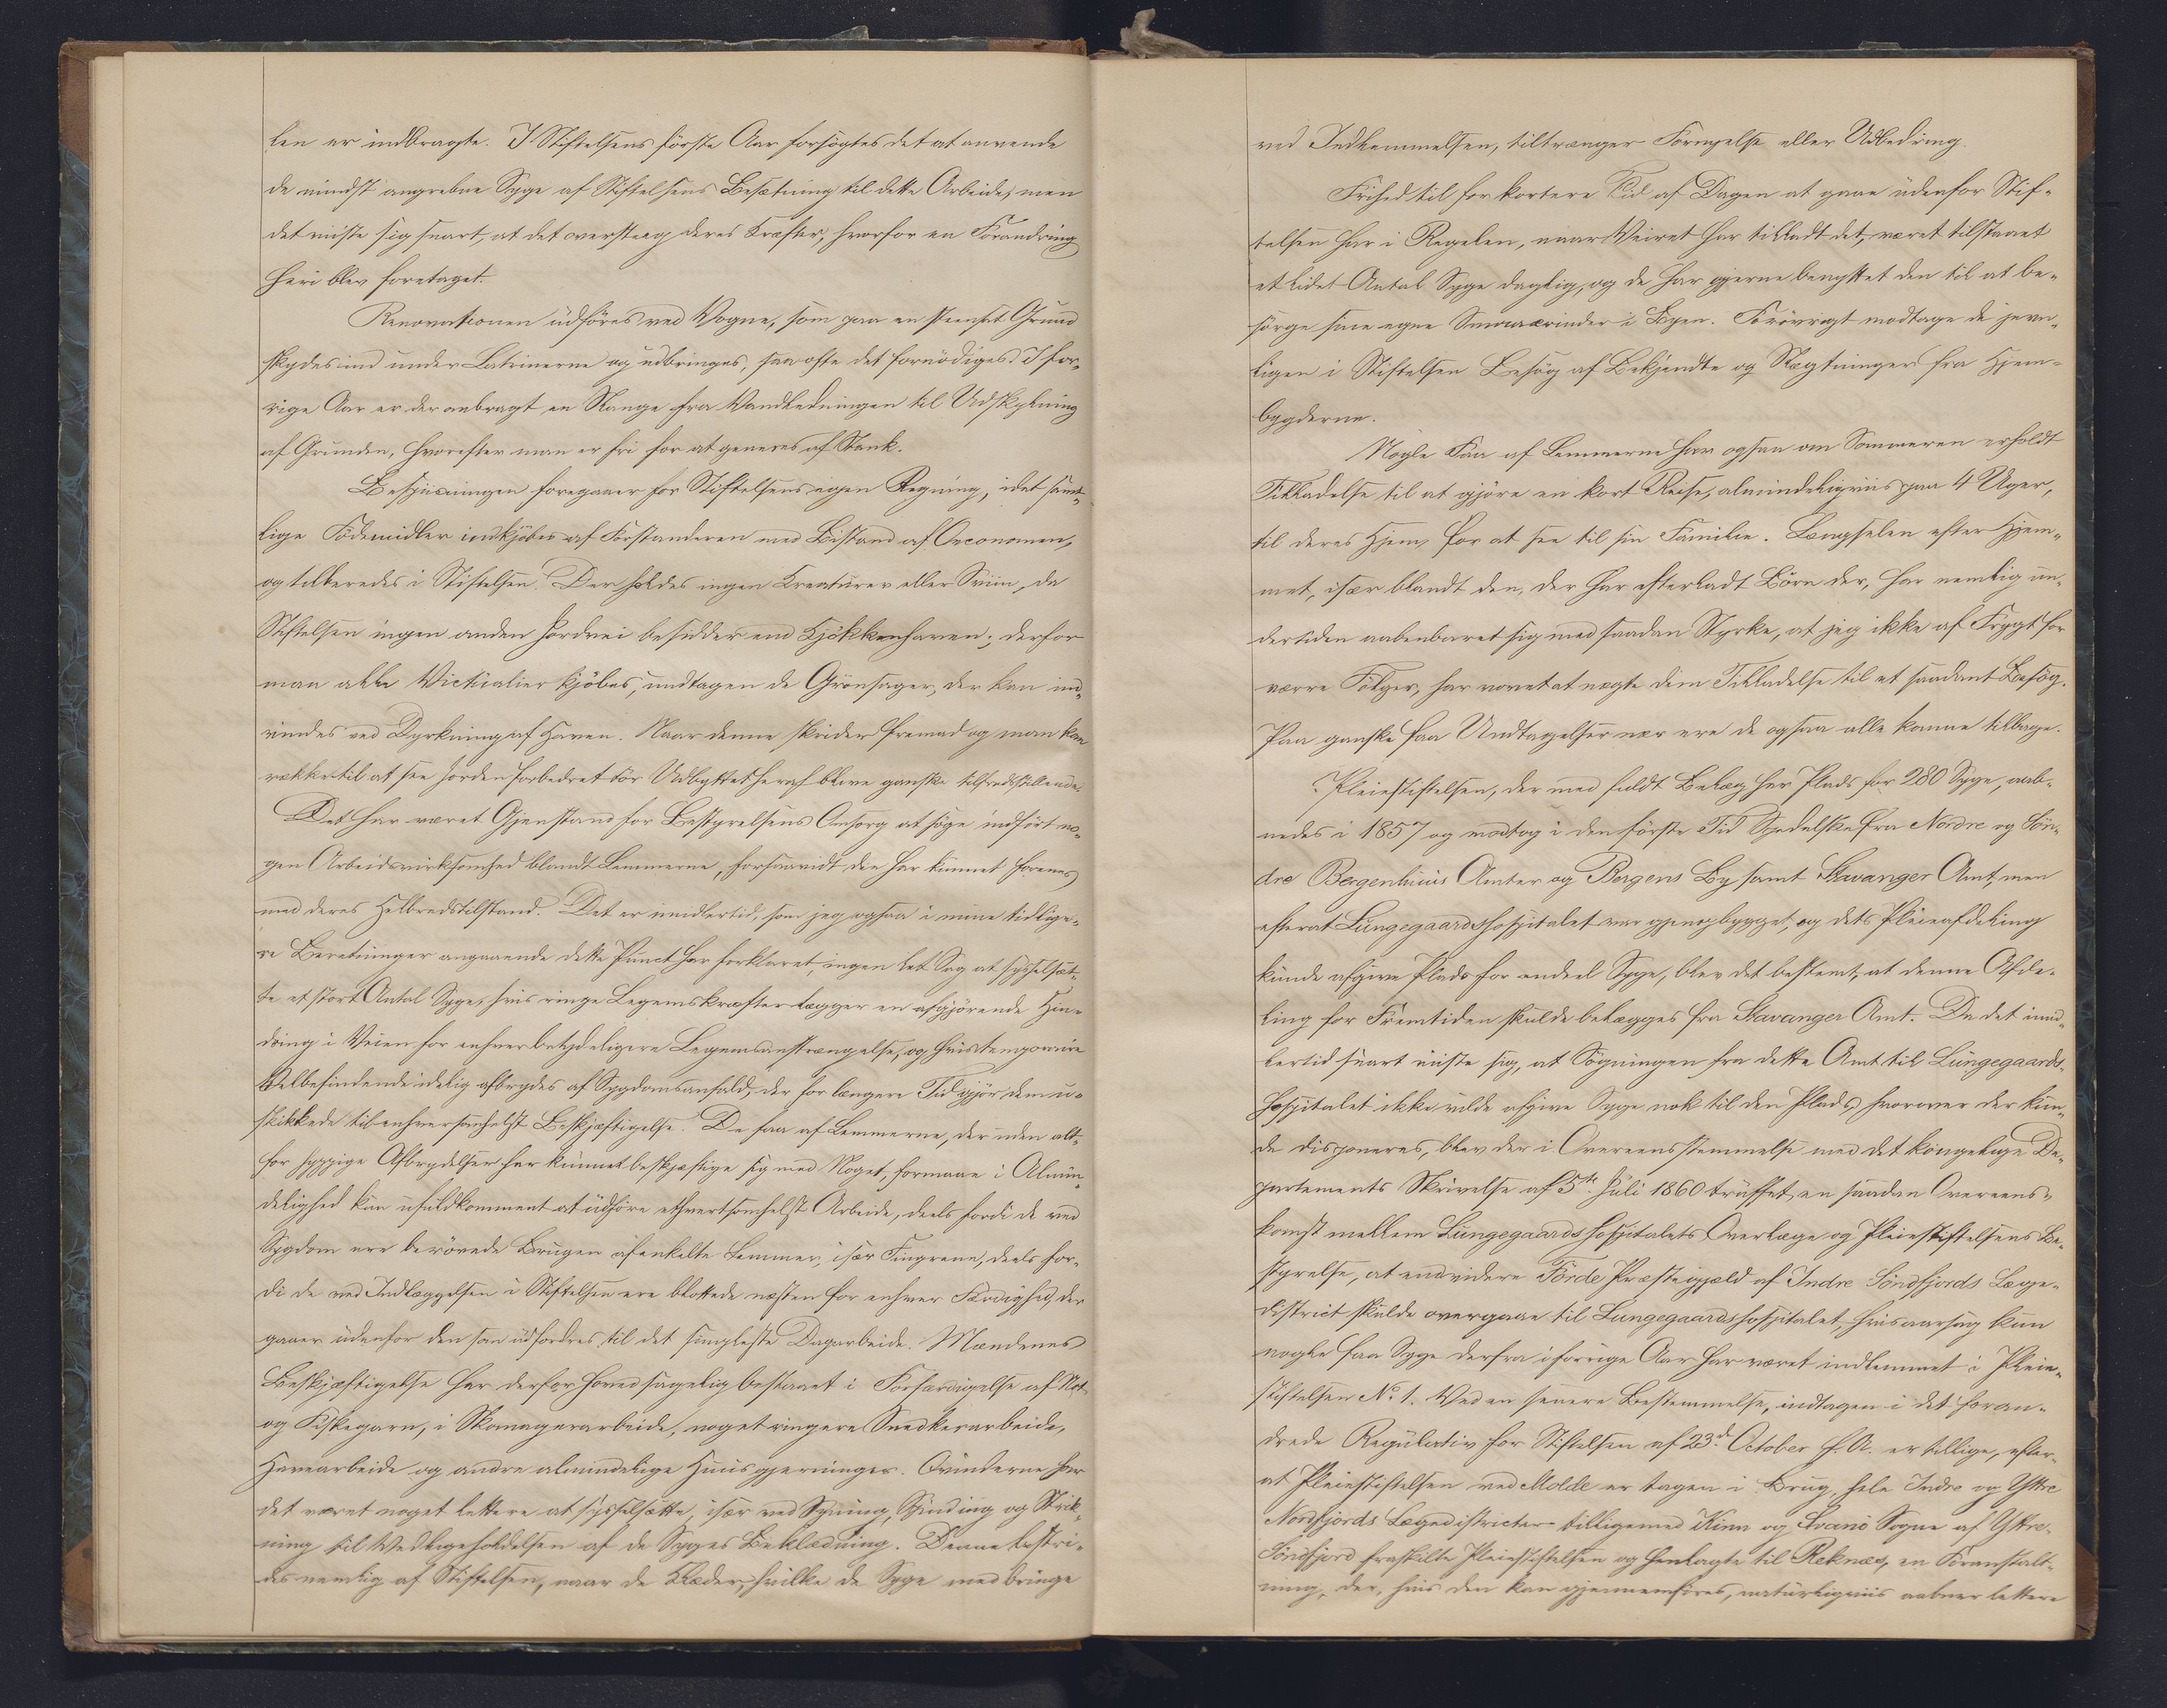 len er indbragte. I Stiftelsens første Aar forsøgtes det at anvende
de mindst angrebne Syge af Stiftelsens Besætning til dette Arbeide, men
det viiste sig snart, at det oversteeg deres Kræfter, hvorfor en Forandring
heri blev foretaget.
Renovationen udføres ved Vogne, som paa en steensat Grund
skydes ind under Latrinerne og udbringes, saa ofte det fornødiges. I for-
rige Aar er der anbragt en Slange fra Vandledningen til Udskylning
af Grunden, hvorefter man er fri for at generes af Stank.
Bespiisningen foregaaer for Stiftelsens egen Regning, idet samt-
lige Fødemidler indkjøbes af Forstanderen med Bistand af Oeconomen,
og tilberedes i Stiftelsen. Der holdes ingen Kreaturer eller Sviin, da
Stiftelsen ingen anden Jordvei besidder end Kjøkkenhaven; derfor
maa alle Victualier kjøbes, undtagen de Grønsager, der kan ind-
vindes ved Dyrkning af Haven. Naar denne skrider fremad og man kan
række til at see Jorden forbedret tør Udbyttet heraf blive ganske tilfredsstillende.
Det har været Gjenstand for Bestyrelsens Omsorg at søge indført no-
gen Arbeidsvirksomhed blandt Lemmerne, forsaavidt den har kunnet forenes
med deres Helbredstilstand. Det er imidlertid, som jeg ogsaa i mine tidlige-
re Beretninger angaaende dette Punct har forklaret, ingen let Sag at sysselsæt-
te et stort Antal Syge, hvis ringe Legemskræfter lægger en afgjørende Hin-
dring i Veien for enhver betydeligere Legemsanstrængelse, og hvis temporaire
Velbefindende idelig afbrydes af Sygdomsanfald, der for længere Tid gjør dem u-
skikkede til enhversomhelst Beskjæftigelse. De faa af Lemmerne, der uden alt-
for hyppige Afbrydelser har kunnet beskjæftige sig med Noget, formaae i Almin-
delighed kun ufuldkomment at udføre ethvertsomhelst Arbeide, deels fordi de ved
Sygdom ere berøvede Brugen af enkelte Lemmer, især Fingrene, deels for-
di de ved Indlæggelsen i Stiftelsen ere blottede næsten for enhver Færdighed, der
gaaer udenfor den som udfordres til det simpleste Dagarbeide. Mændenes
Beskjæftigelse har derfor hovedsagelig bestaaet i Forfærdigelse af Not-
og Fiskegarn, i Skomagerarbeide, noget ringere Snedkerarbeide,
Havearbeide og andre almindelige Huusgjerninger. Qvinderne har
det været noget lettere at sysselsætte, især ved Syning, Spinding og Strik-
ning til Vedligeholdelsen af de Syges Beklædning. Denne bestri-
des nemlig af Stiftelsen, naar de Klæder, hvilke de Syge medbringe
ved Indkommelsen, tiltrænger Fornyelse eller Udbedring.
Frihed til for kortere Tid af Dagen at gaae udenfor Stif-
telsen har i Regelen, naar Veiret har tilladt det, været tilstaaet
et lidet Antal Syge daglig, og de har gjerne benyttet den til at be-
sørge sine egne Smaaærinder i Byen. Forøvrigt modtage de jevn-
ligen i Stiftelsen Besøg af Bekjendte og Slægtninger fra Hjem-
bygderne.
Nogle Faa af Lemmerne har ogsaa om Sommeren erholdt
Tilladelse til at gjøre en kort Reise, almindeligviis paa 4 Uger,
til deres Hjem, for at see til sin Familie. Længselen efter Hjem-
met, især blandt den, der har efterladt Børn der, har nemlig un-
dertiden aabenbaret sig med saadan Styrke, at jeg ikke af Frygt for
værre Følger, har vovet at nægte dem Tilladelse til et saadant Besøg.
Paa ganske faa Undtagelser nær ere de ogsaa alle komne tilbage.
Pleiestiftelsen, der med fuldt Belæg har Plads for 280 Syge, aab-
nedes i 1857 og modtog i den første Tid Spedalske fra Nordre og Søn-
dre Bergenhuus Amter og Bergens By samt Stavanger Amt, men
efterat Lungegaardshospitalet var gjenopbygget, og dets Pleieafdeling
kunde afgive Plads for endeel Syge, blev det bestemt, at denne Afde-
ling for Fremtiden skulde belægges fra Stavanger Amt. Da det imid-
lertid snart viiste sig, at Søgningen fra dette Amt til Lungegaards-
hospitalet ikke vilde afgive Syge nok til den Plads, hvorover der kun-
de disponeres, blev der i Overeensstemmelse med det kongelige De-
partements Skrivelse af 5te Juli 1860 truffet en saadan Overeens-
komst mellem Lungegaardshospitalets Overlæge og Pleiestiftelsens Be-
styrelse, at endvidere Førde Præstegjæld af Indre Søndfjords Læge-
district skulde overgaae til Lungegaardshospitalet, hvisaarsag kun
nogle faa Syge derfra i forrige Aar har været indlemmet i Pleie-
stiftelsen No 1. Ved en senere Bestemmelse, indtagen i det foran-
drede Regulativ for Stiftelsen af 23d October f. A. er tillige, efter-
at Pleiestiftelsen ved Molde er tagen i Brug, hele Indre og Yttre
Nordfjords Lægedistricter tilligemed Kinn og Svanø Sogne af Yttre-
Søndfjord fraskilte Pleiestiftelsen og henlagte til Reknæs, en Foranstalt-
ning, der, hvis den kan gjennemføres, naturligviis aabner lettere